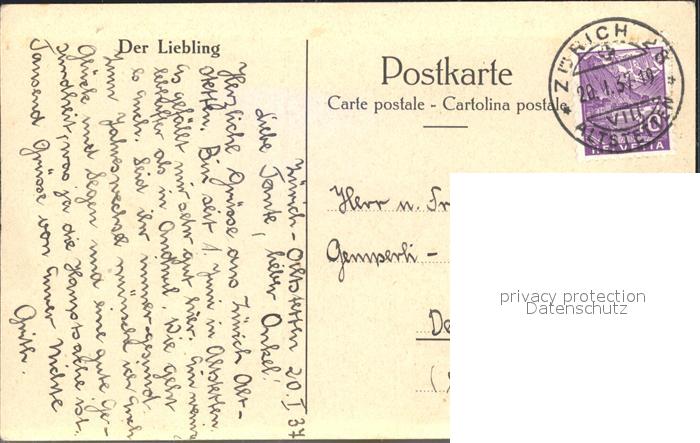 Der Liebling
Postkarte
Carte postale - Cartolina postale
ZÜRICH
20.I.37
VIII
ALTSTETTEN
10
HELVETIA
Zürich-Altstetten 20.I.37
Liebe Tante, lieber Onkel!
Herzliche Grüsse aus Zürich Alt-
stetten. Bin seit 1. Juni in Altstetten.
Es gefällt mir sehr gut hier. Ein wenig
als in Wie geht
es auch. Seid ihr immer gesund.
Zum Jahreswechsel wünsche ich Euch
Glück und Segen und eine gute Ge-
sundheit, was ja die Hauptsache ist.
Tausend Grüsse von Eurer Nichte
Herr u. Fr
Gemperli -
De
privacy protection
Datenschutz